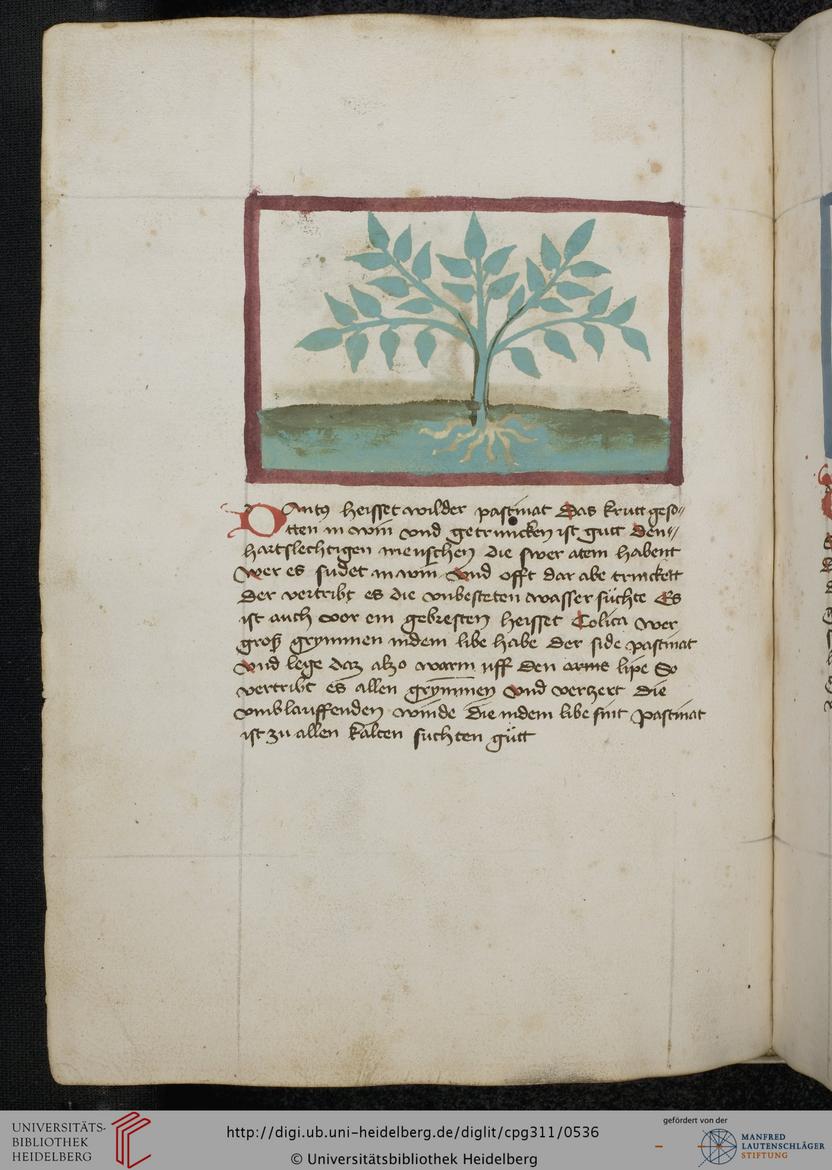 Dantꝯ heisset wilder pastinat Das krutt geso⸗
tten in win vnd getruncken ist gutt den⸗
hartslechtigen menschen die swer atem habent
Wer es sudet in win Vnd offt dar abe trinckett
Der vertribt es die vnbesteten wasser suchte Es
ist auch vor ein gebresten heisset Colica wer
groß grymmen indem libe habe der side pastinat
Vnd lege daz also warm uff den arme lipe So
vertribt es allen grymmen Vnd verzert die
vmblauffenden winde die indem libe sint pastinat
ist zu allen kalten suchten gutt
UNIVERSITÄTS-
BIBLIOTHEK
HEIDELBERG
http://digi.ub.uni-heidelberg.de/diglit/cpg311/0536
© Universitätsbibliothek Heidelberg
gefördert von der
MANFRED
LAUTENSCHLÄGER
STIFTUNG